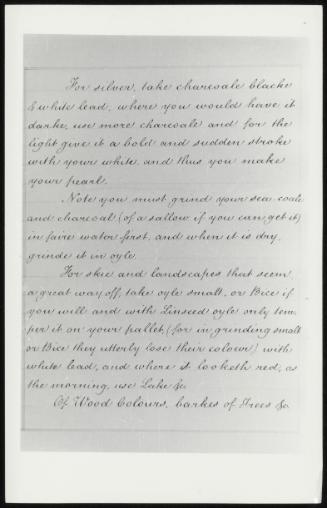 For silver, take charcoale blacke
& white lead, where you would have it
darke, use more charcoale and for the
light give it a bold and sudden stroke
with your white, and thus you make
your pearl.
Note you must grind your sea coale
and charcoal (of a sallow if you can get it)
in faire water first, and when it is dry
grinde it in oyle.
For skie and landscapes that seem
a great way off, take oyle smalt, or Bice if
you will and with Linseed oyle only tem-
per it on your pallet, (for in grinding smalt
or Bice they utterly lose their colour) with
white lead, and where it looketh red, as
the morning, use Lake &c
Of Wood Colours, barkes of Trees &c